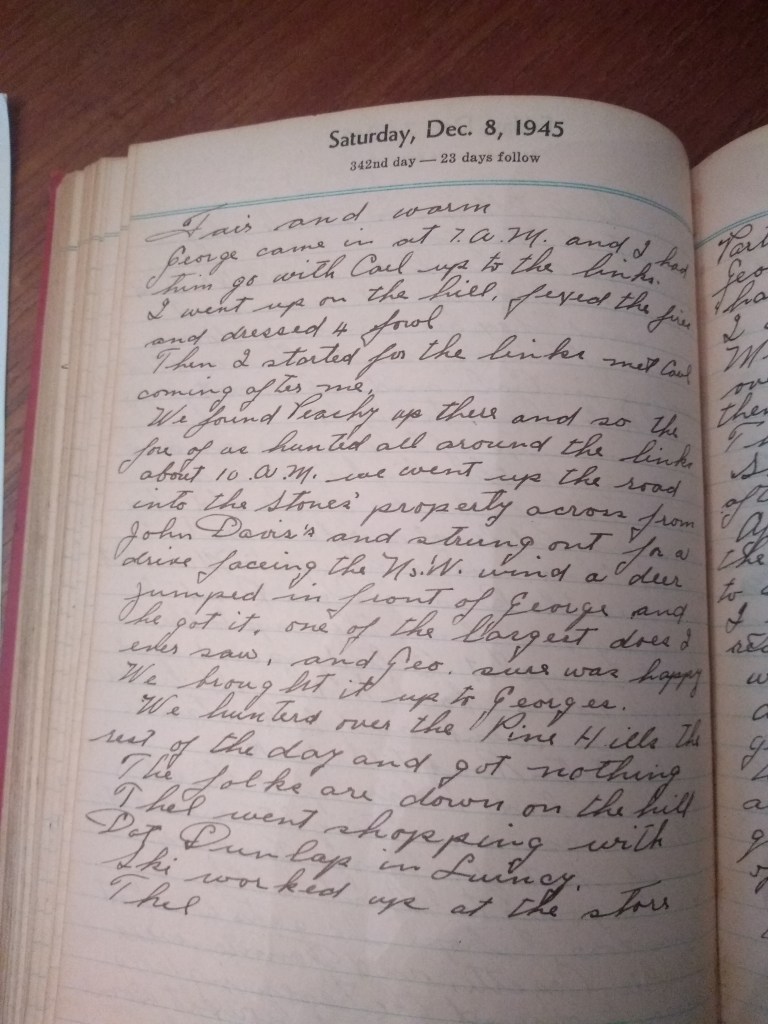 Saturday, Dec. 8, 1945
342nd day — 23 days follow
Fair and warm
George came in at 7.A.M. and I had
him go with Carl up to the links.
I went up on the hill, fixed the fires
and dressed 4 fowl
Then I started for the links met Carl
coming after me.
We found Peachy up there and so the
four of us hunted all around the links
about 10.A.M. we went up the road
into the Stones' property across from
John Davis's and strung out for a
drive faceing the N.W. wind a deer
jumped in front of George and
he got it, one of the largest does I
ever saw, and Geo. sure was happy
We brought it up to Georges.
We hunted over the Pine Hills the
rest of the day and got nothing
The folks are down on the hill
Thel went shopping with
Dot Dunlap in Quincy.
Ski worked up at the store
Thel